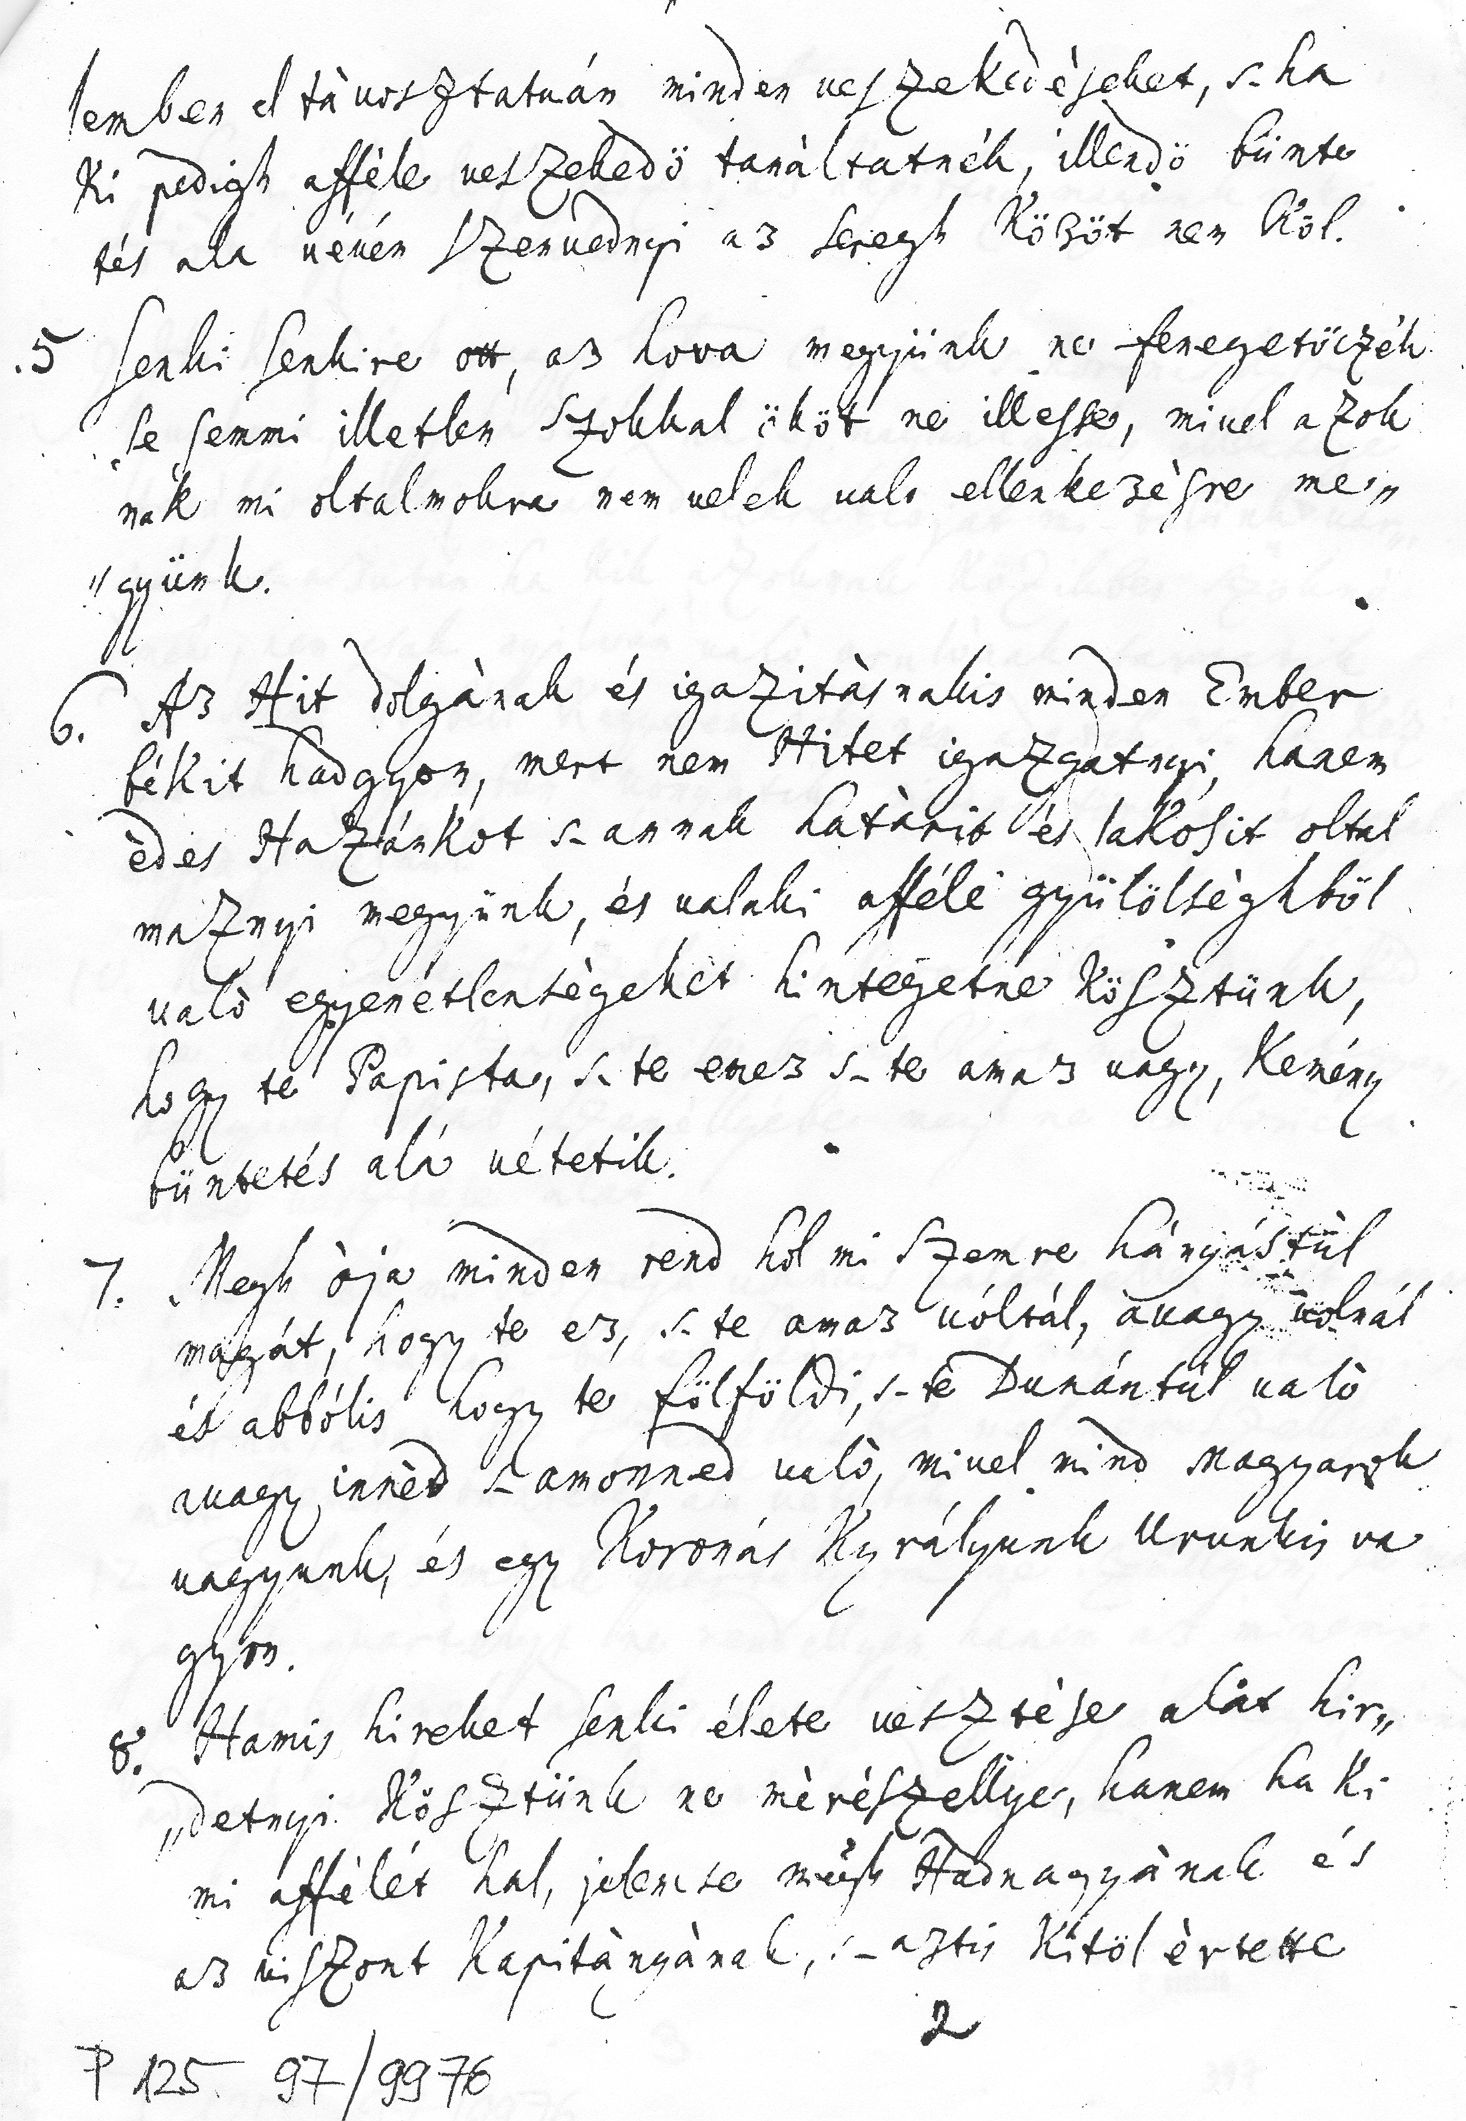 lemben el tàvosztatván minden veszekedèseket, s-ha
Ki pedigh affèle veszekedö tanàltatnék, illendö bünte
tés ala vévén szenvednyi az seregh Közöt nem Köl.
.5 Senki senkire ott, az hova megyünk ne fenegetöczék
se semmi illetlen szokkal ököt ne illesse, mivel azok
nak mi oltalmokra nem velek valo ellenkezèsre me„
„gyünk.
6. Az Hit dolgànak és igazitàsnakis minden Ember
békit hadgyon, mert nem Hitet igazgatnyi, hanem
èdes Hazánkot s-annak hatàrit és lakósit oltal
maznyi megyünk, és valaki afféle gyülölsèghböl
valò egyenétlensègeket hintegetne Kösztünk,
hogy te Papista, s-te emez s-te amaz vagy, Kemény
büntetés alá vétetik.
7. Megh òja minden rend hol mi szemre hányástùl
magát, hogy te ez, s-te amaz vóltál, avagy volnál
és abbólis hogy te fölföldi, s-te Dunántúl valò
avagy innèd s-amonned valò, mivel mind Magyarok
vagyunk, és egy Koronás Kyrályunk Urunkis va
gyon.
8. Hamis hireket senki élete vesztèse alàt hir„
„detnyi Kösztünk ne mèrészellye, hanem ha Ki
mi affèlét hal, jelencse megh Hadnagyànak és
az viszont Kapitànyànak, s-aztis Kitöl èrtette
2
P 125. 97/9976